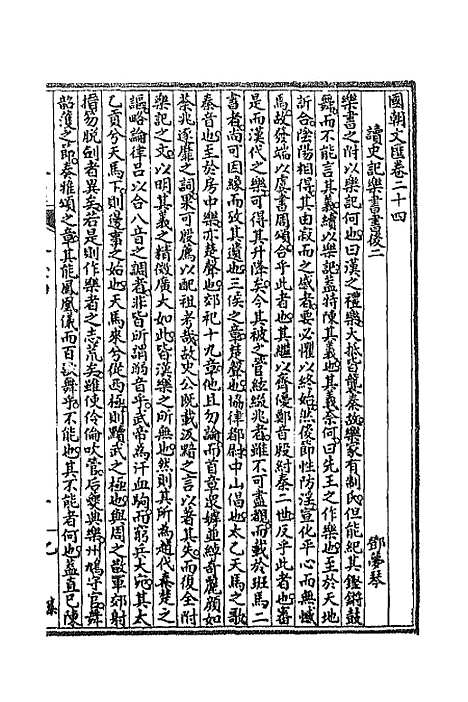 國朝文匯卷二十四
讀史記樂書書後二
鄧夢琴
樂書之附以樂記何也曰漢之禮樂大抵皆襲秦故樂家有制氏但能紀其鏗鏘鼓
舞而不能言其義續以樂記蓋特陳其義也其義奈何曰先王之作樂也至於天地
訢合陰陽相得其由寂而之感者要必懼以終始然後節性防淫宣化平心而無憾
焉故發端以虞書周頌合乎此者也其繼以齊優鄭音殷紂秦二世反乎此者也審
是而漢代之樂可得其升降矣今其被之管絃綴兆者雖不可盡覩而載於班馬二
書者尚可因緣而攷其遺也三侯之章楚聲也協律都尉中山倡也太乙天馬之歌
秦音也至於房中樂亦楚聲也郊祀十九章他且勿論而首章眾嫭並綽奇麗顏如
荼兆逐靡之詞果可殷薦以配祖考哉故史公既載黯之言以著其失而復全附
樂記之文以明其義之精微廣大如此皆漢樂之所無也然則其所為趙代秦楚之
謳略論律呂以合八音之調者非皆所謂溺音乎武帝為汗血駒而窮兵大宛其太
乙貢兮天馬下則邊事之始也天馬來兮從西極則黷武之極也與周之散軍郊射
搢笏脫劍者異矣若是則作樂者之志荒矣雖使伶倫吹管后夔典樂州鳩守官舞
韶濩之節奏雅頌之章其能鳳凰儀而百獸舞乎不能也其不能者何也蓋直已陳